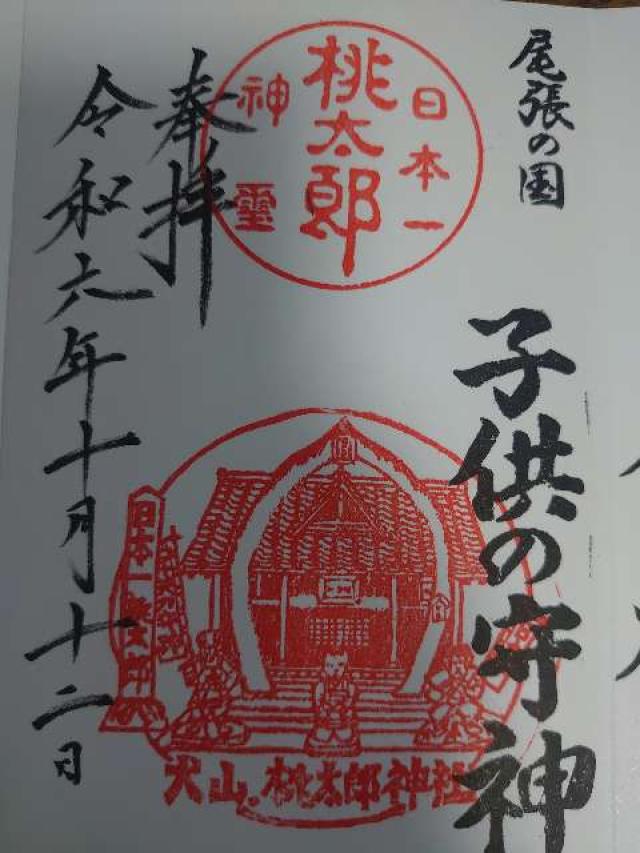 尾張の国
子供の守神
日本一
桃太郎
神霊
奉拝
令和六年十月十二日
日本一桃太郎
犬山。桃太郎神社